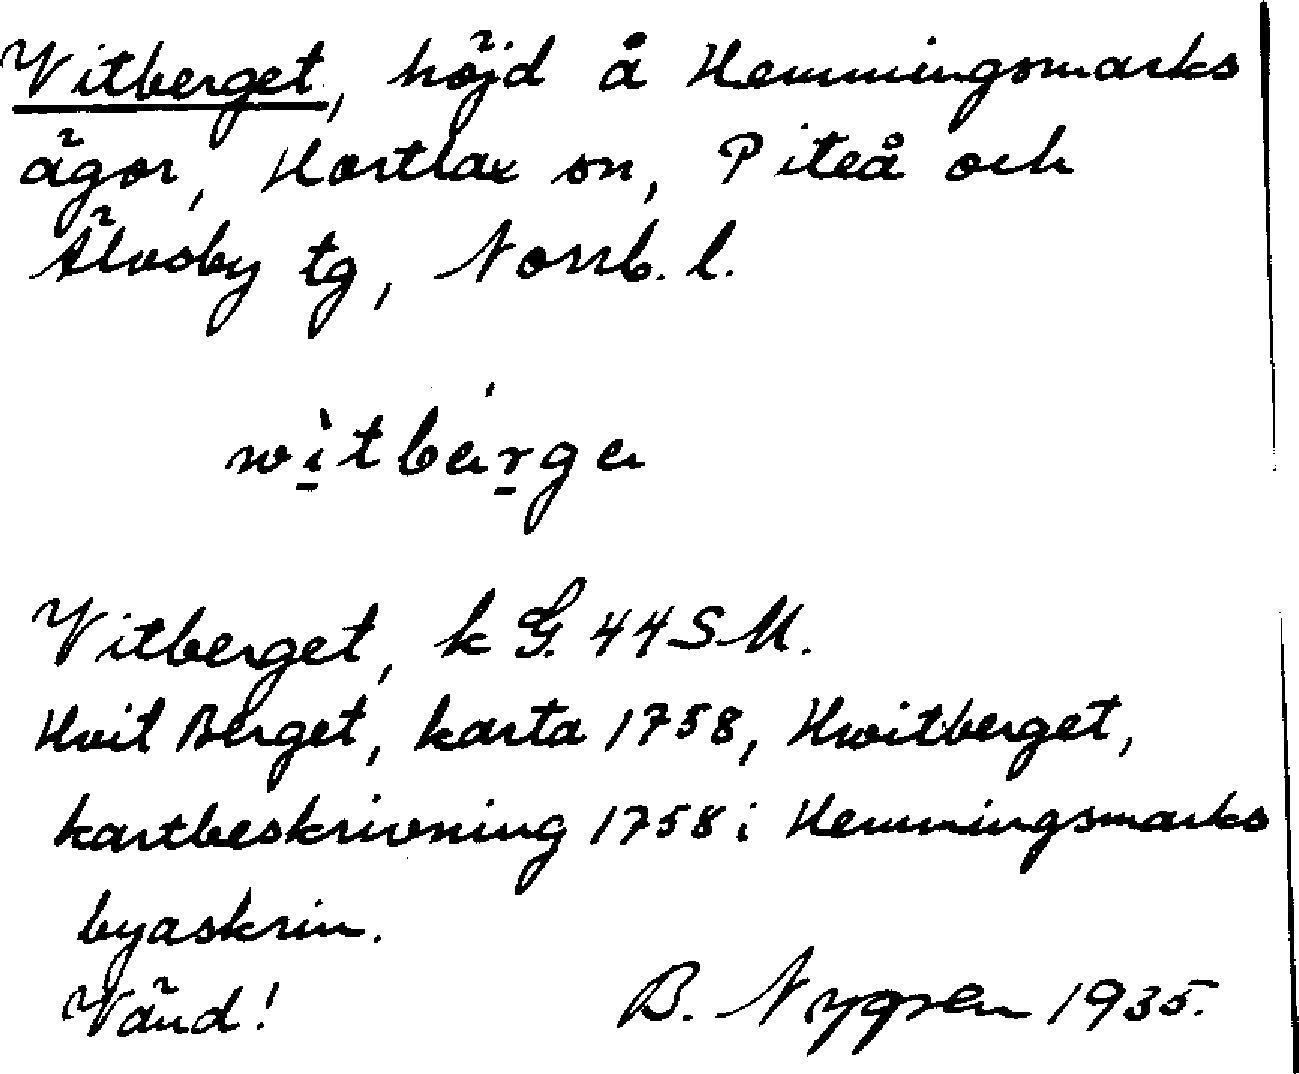 Vitberget, höjd å Hemmingsmarks
ägor, Hortlax sn, Piteå och
Älvsby tg, Norrb. l.
wi̱̇̀tbäṟga
Vitberget, k G. 44 S M.
Hvit Berget, karta 1758, Hwitberget,
kartbeskrivning 1758 i Hemmingsmarks
byaskrin.
Vänd! B. Nygren 1935.